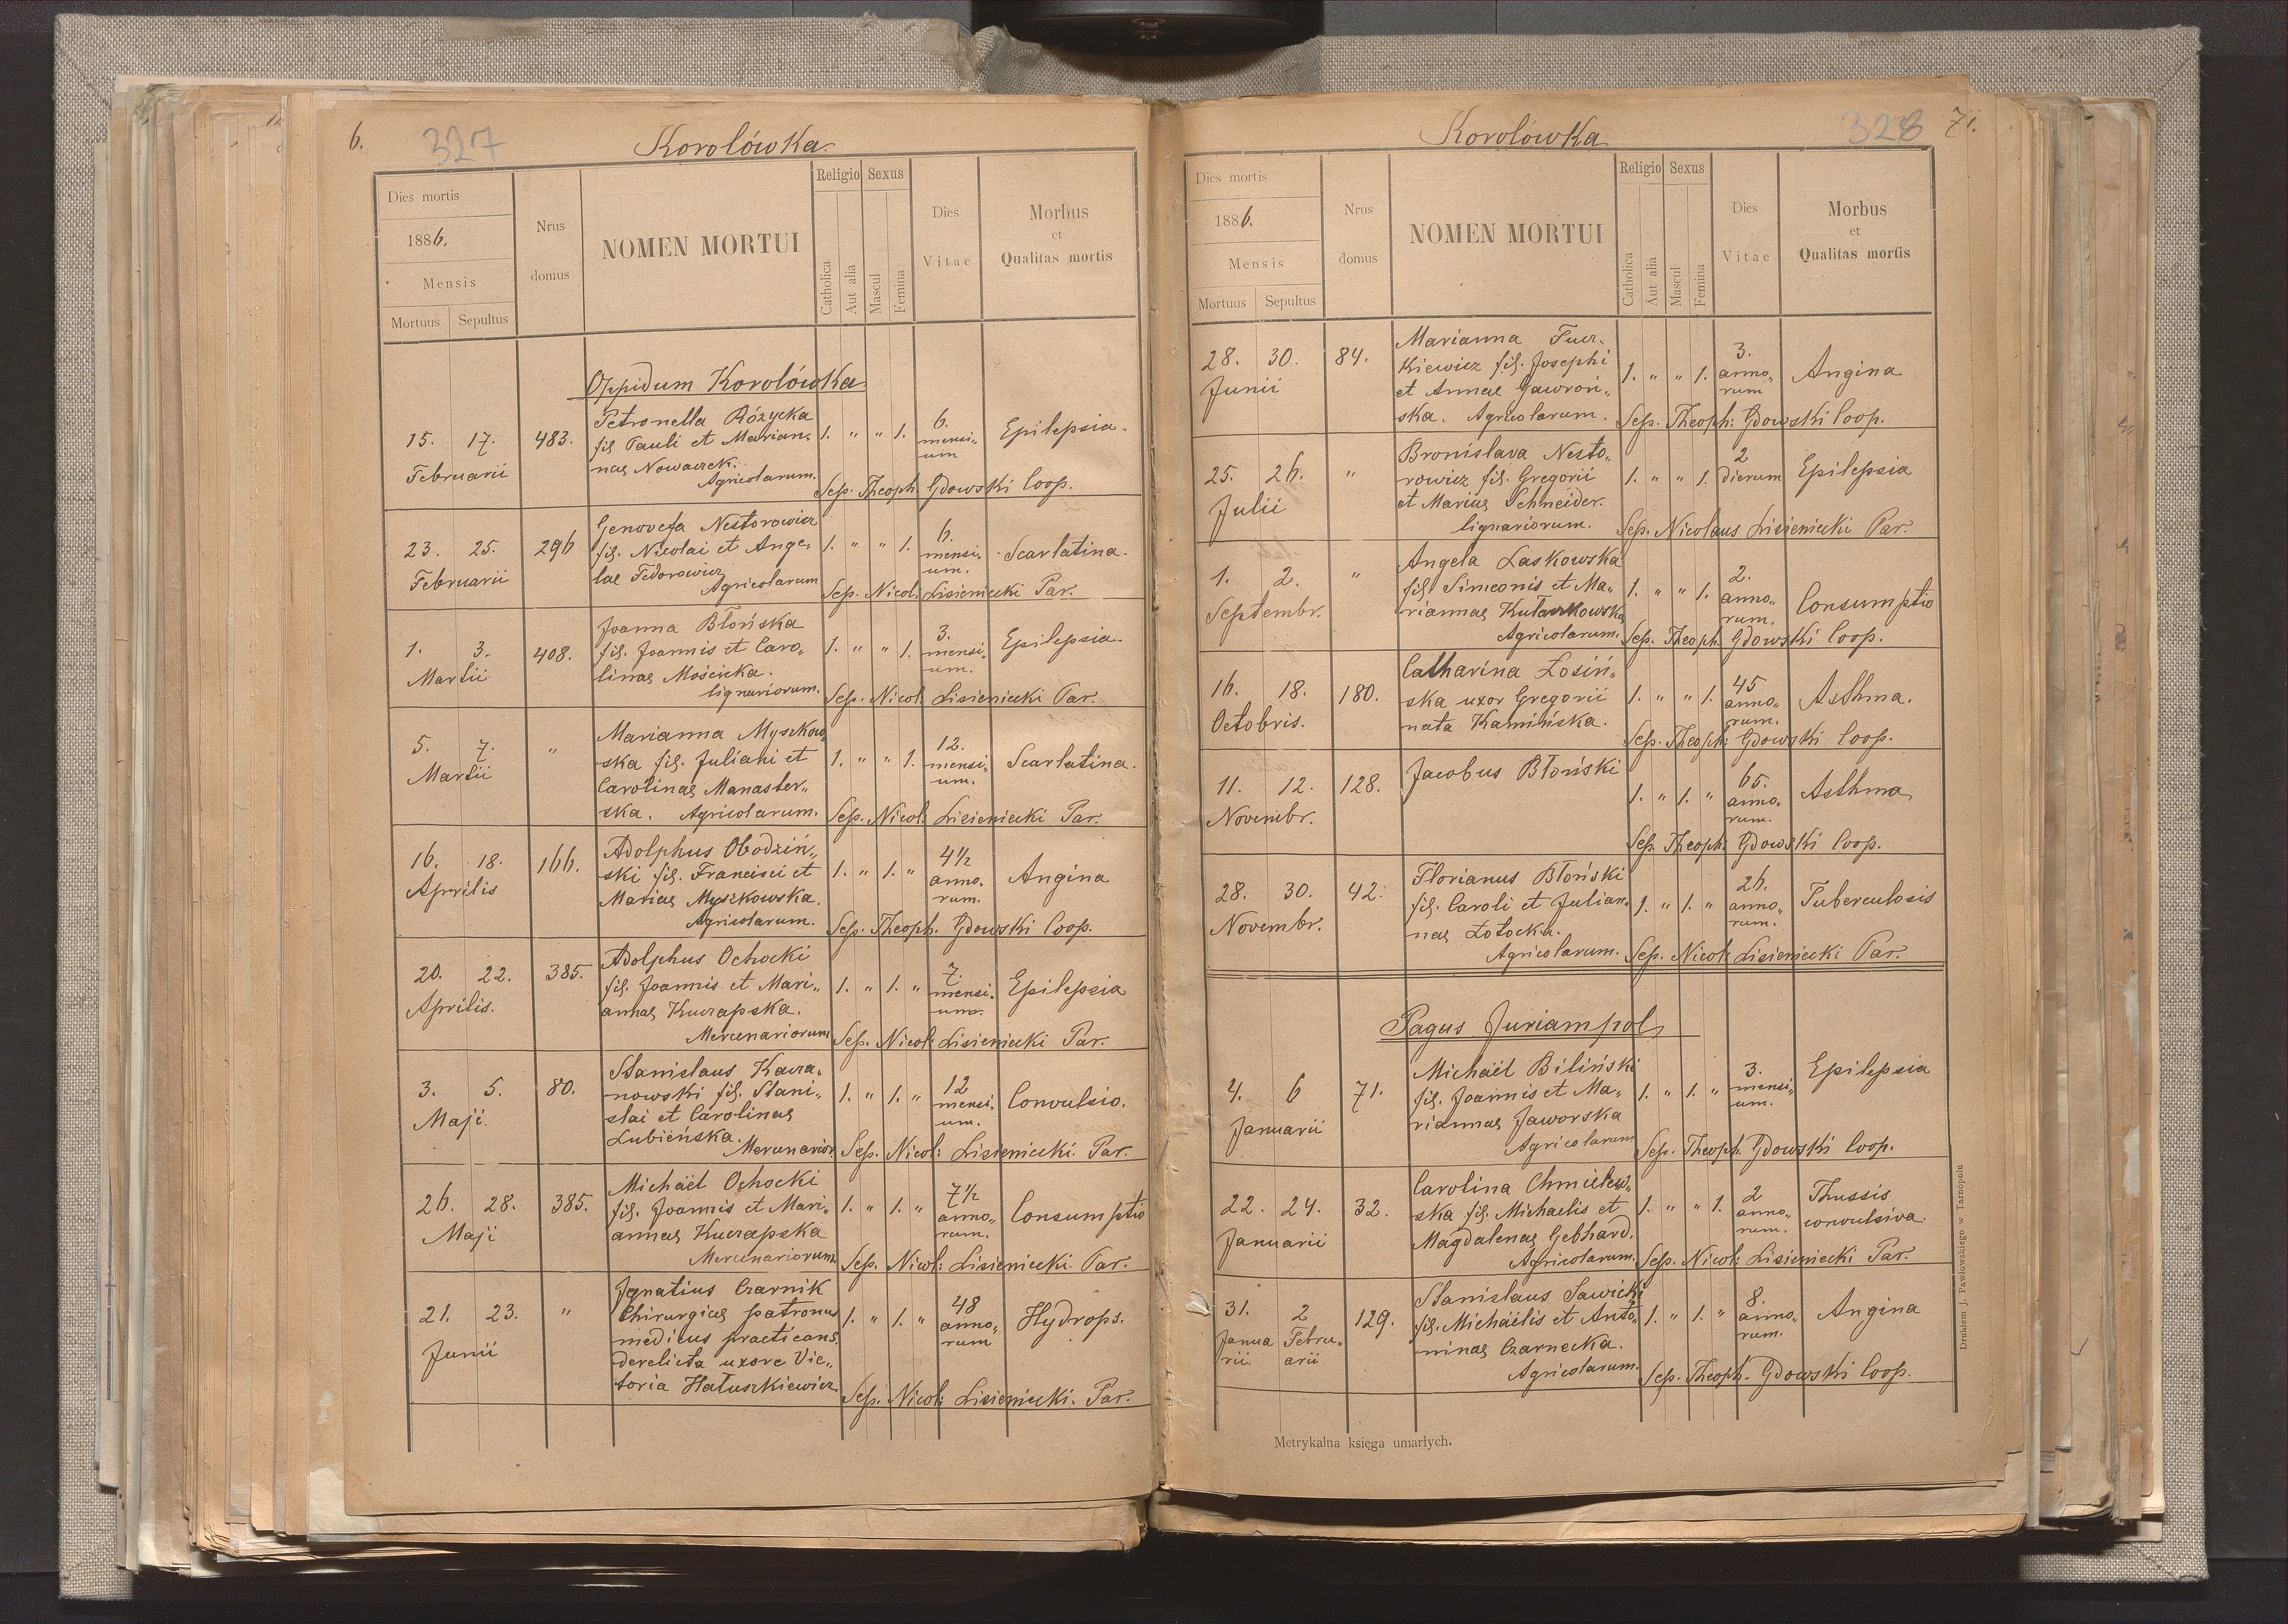 6.
327
Korolówka.
Dies mortis
1886.
Mensis
Mortuus Sepultus
Nrus
domus
NOMEN MORTUI
Religio Sexus
Catholica
Aut alia
Mascul
Femina
Dies
Vitae
Morbus
et
Qualitas mortis
Oppidum Korolówka
15. 17.
Februarii
483.
Petronella Różycka
fil. Pauli et Marian„
nae Nowaczek.
Agricolarum.
1. " " 1.
6.
mensi„
um
Epilepsia.
Sep. Theoph. Gdowski Coop.
23. 25.
Februarii
296
Genovefa Nestorowicz
fil. Nicolai et Ange„
lae Fedorowicz
Agricolarum
1. " " 1.
6.
mensi„
um.
Scarlatina.
Sep. Nicol. Lisieniecki Par.
1. 3.
Martii
408.
Joanna Błońska
fil. Joannis et Caro„
linae Mościcka.
lignariorum.
1. " " 1.
3.
mensi„
um.
Epilepsia.
Sep. Nicol. Lisieniecki Par.
5. 7.
Martii
"
Marianna Myszkow„
ska fil. Juliani et
Carolinae Manaster„
ska. Agricolarum.
1. " " 1.
12.
mensi„
um.
Scarlatina.
Sep. Nicol: Lisieniecki Par.
16. 18.
Aprilis
166.
Adolphus Obodziń„
ski fil. Francisci et
Mariae Myszkowska.
Agricolarum.
1. " 1. "
4½
anno„
rum.
Angina
Sep. Theoph. Gdowski Coop.
20. 22.
Aprilis.
385.
Adolphus Ochocki
fil. Joannis et Mari„
annae Kuczapska.
Mercenariorum
1. " 1. "
7.
mensi„
um.
Epilepsia
Sep. Nicol: Lisieniecki Par.
3. 5.
Maji.
80.
Stanislaus Kacza„
nowski fil. Stani„
slai et Carolinae
Lubieńska.
Mercenarior.
1. " 1. "
12
mensi„
um.
Convulsio.
Sep. Nicol: Lisieniecki. Par.
26. 28.
Maji
385.
Michaël Ochocki
fil. Joannis et Mari„
annae Kuczapska
Mercenariorum.
1. " 1. "
7½
anno„
rum.
Consumptio
Sep. Nicol: Lisieniecki. Par.
21. 23.
Junii
"
Ignatius Czarnik
Chirurgiae patronus
medicus practicans.
derelicta uxore Vic„
toria Hałuszkiewicz
1. " 1. "
48
anno„
rum
Hydrops.
Sep. Nicol: Lisieniecki. Par.
Korolówka
328
7.
Dies mortis
1886.
Mensis
Mortuus Sepultus
Nrus
domus
NOMEN MORTUI
Religio Sexus
Catholica
Aut alia
Mascul
Femina
Dies
Vitae
Morbus
et
Qualitas mortis
28. 30.
Junii
84.
Marianna
kiewicz fil. Josephi
et Annae Gawroń„
ska. Agricolarum.
1. " " 1.
3.
anno„
rum
Angina
Sep. Theoph: Gdowski Coop.
25. 26.
Julii
"
Bronislava Nesto„
rowicz fil. Gregorii
et Mariae Schneider.
lignariorum.
1. " " 1.
2
dierum
Epilepsia
Sep. Nicolaus Lisieniecki Par.
1. 2.
Septembr.
"
Angela Laskowska
fil. Simeonis et Ma„
riannae
Agricolarum.
1. " " 1.
2.
anno„
rum.
Consumptio
Sep. Theoph. Gdowski Coop.
16. 18.
Octobris.
180.
Catharina Łosiń„
ska uxor Gregorii
nata Kamińska.
1. " " 1.
45
anno„
rum.
Asthma.
Sep. Theoph: Gdowski Coop.
11. 12.
Novembr.
128.
Jacobus Błoński
1. " 1. "
65.
anno„
rum.
Asthma
Sep. Theoph: Gdowski Coop.
28. 30.
Novembr.
42.
Florianus Błoński
fil. Caroli et Julian„
nae Łotocka.
Agricolarum.
1. " 1. "
26.
anno„
rum.
Tuberculosis
Sep. Nicol: Lisieniecki Par.
Pagus Juriampol
4. 6
Januarii
71.
Michaël Biliński
fil. Joannis et Ma„
riannae Jaworska
Agricolarum
1. " 1. "
3.
mensi„
um.
Epilepsia
Sep. Theoph. Gdowski Coop.
22. 24.
Januarii
32.
Carolina Chmielew„
ska fil. Michaelis et
Magdalenae Gebhard.
Agricolarum.
1. " " 1.
2
anno„
rum.
Thussis
convulsiva.
Sep. Nicol: Lisieniecki Par.
31. 2
Janua Febru„
rii. arii
129.
Stanislaus Sawicki
fil. Michaëlis et Anto„
ninae Czarnecka.
Agricolarum.
1. " 1. "
8.
anno„
rum.
Angina
Sep. Theoph. Gdowski Coop.
Metrykalna księga umarłych.
Drukiem J. Pawłowskiego w Tarnopolu